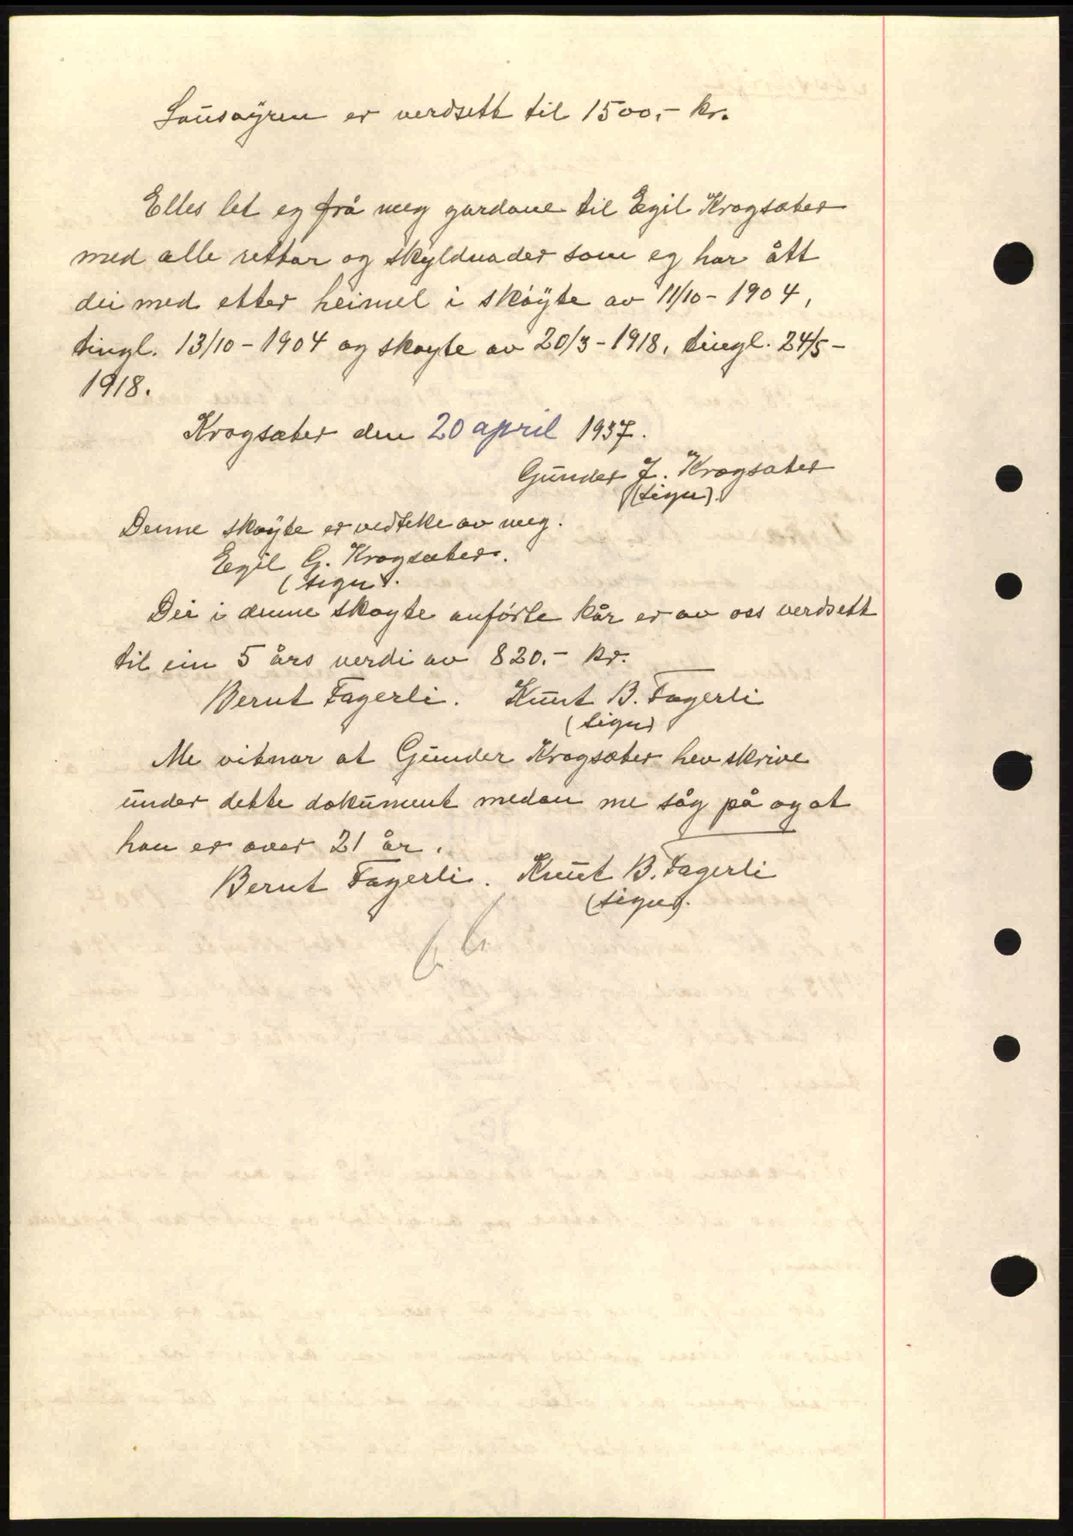 Lausøyren er verdsett til 1500,- kr.
Elles let eg frå meg gardane til Egil Krogsæter
med alle rettar og skyldnader som eg har ått
dei med etter heimel i skøyte av 11/10-1904,
tingl. 13/10-1904 og skøyte av 20/3-1918, tingl. 24/5-
1918.
Krogsæter den 20 april 1937.
Gunder J. Krogsæter
(sign).
Denne skøyte er vedteke av meg.
Egil G. Krogsæter.
(sign).
Dei i denne skøyte anførte kår er av oss verdsett
til ein 5 års verdi av 820.- kr.
Bernt Fagerli. Knut B. Fagerli
(sign)
Me vitnar at Gunder Krogsæter hev skrive
under dette dokument medan me såg på og at
han er over 21 år.
Bernt Fagerli. Knut B. Fagerli
(sign).